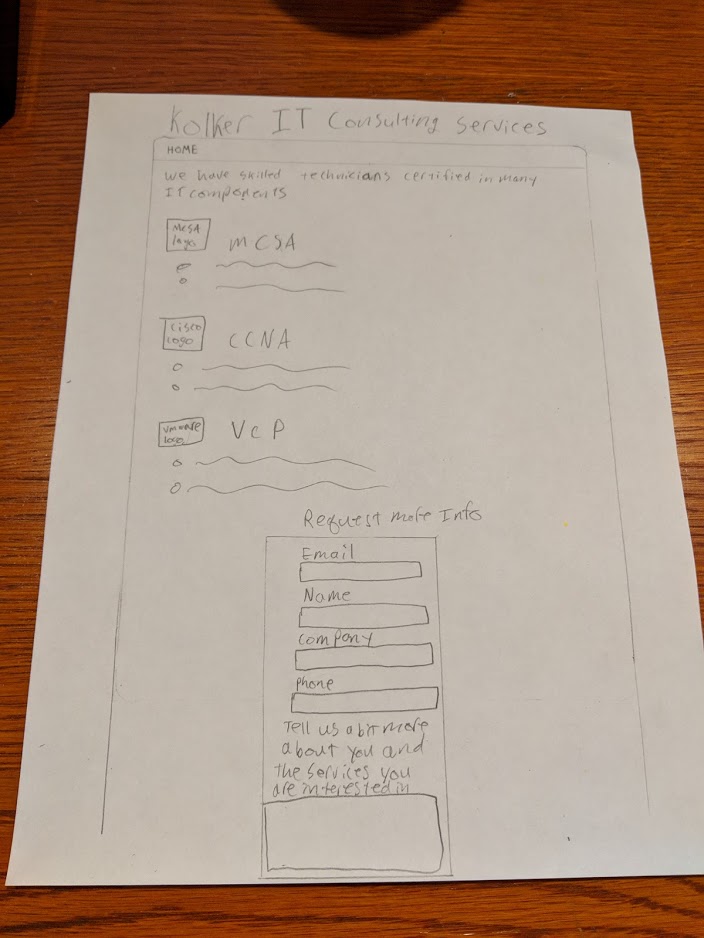 Kolker IT Consulting Services
HOME
we have skilled technicians certified in many
IT components
MCSA
logo
MCSA
cisco
logo
CCNA
vmware
logo
VCP
Request more Info
Email
Name
company
phone
Tell us a bit more
about you and
the services you
are interested in